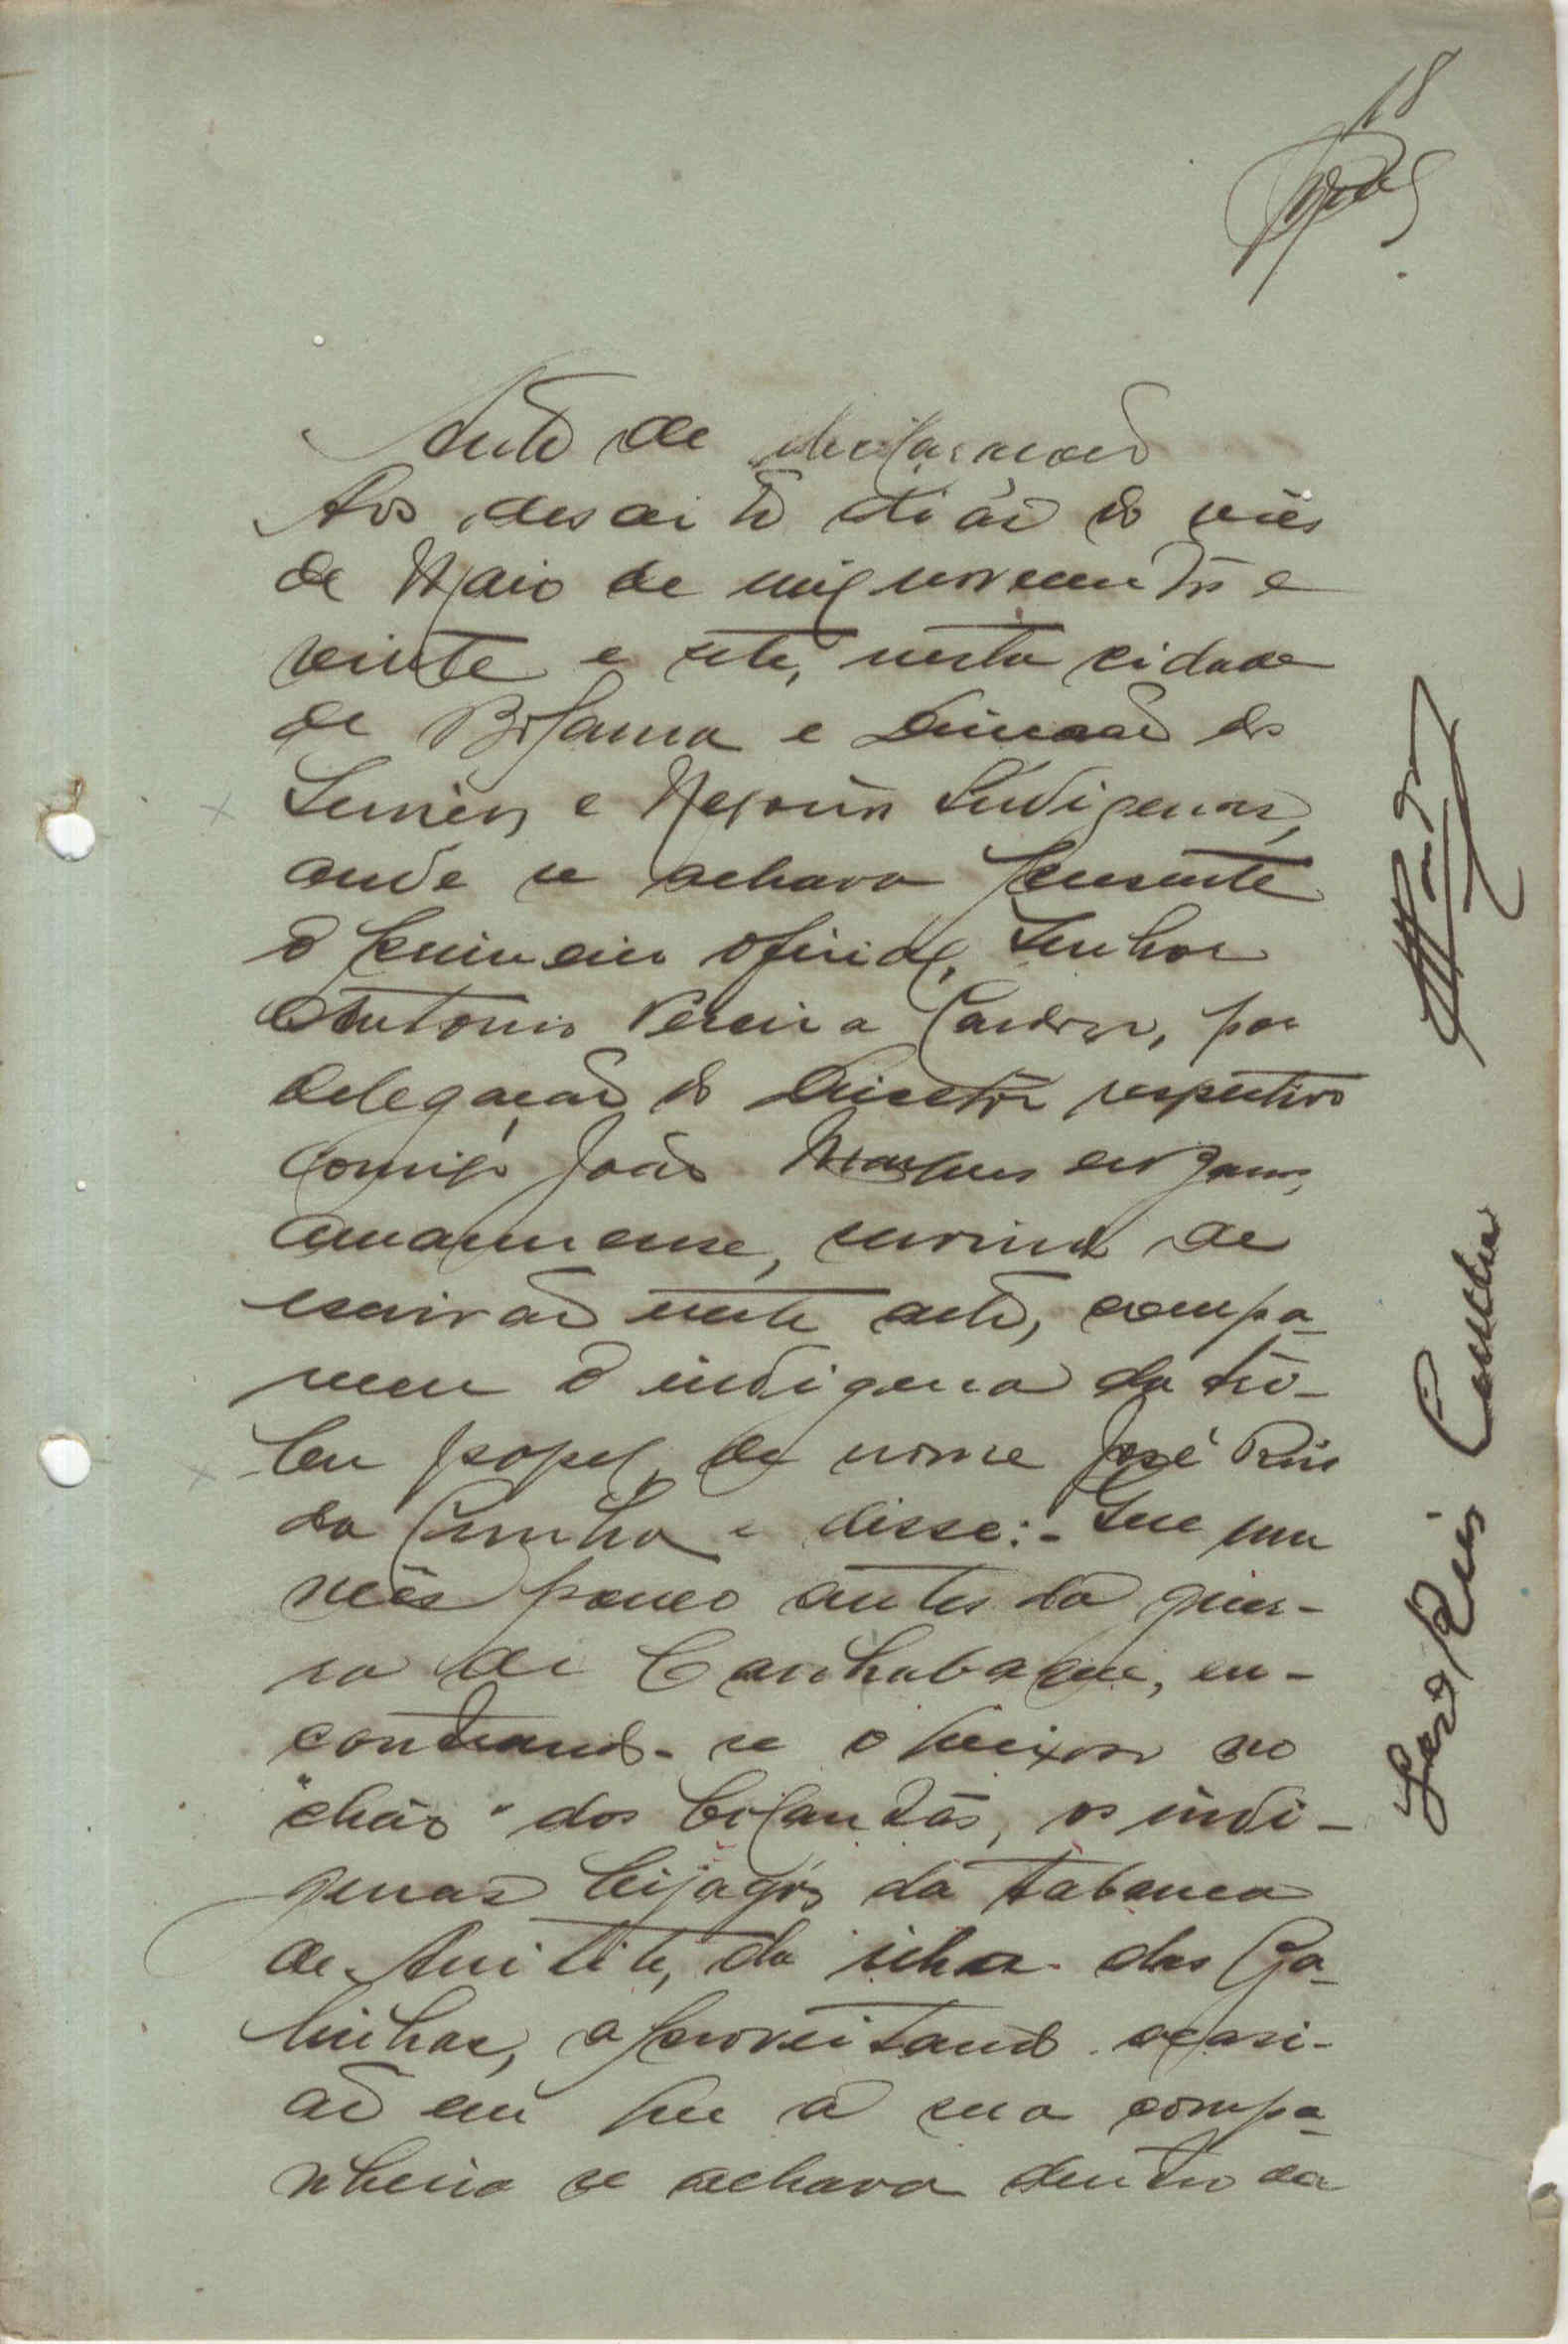 18
Auto de declaração
Aos desaito dias do mês
de Maio de mil novecentos e
vinte e sete, nesta cidade
de Bolama e Direcção dos
Serviços e Negocios Indigenas,
onde se achava presente
o primeiro oficial, Senhor
Antonio Pereira Cardoso, por
delegação do Director respectivo
comigo João Marques
amanuense, servindo de
escrivão neste auto, compa-
receu o indigena da tri-
bu papel, de nome José Rúis
da Cunha e disse:- Que um
mês pouco antes da guer-
ra de Canhabaque, en-
contrando-se o queixoso no
"chão" dos bolantas, os indi-
genas bijagós da tabanca
de Ametite, da ilha das Ga-
linhas, aproveitando ocasi-
ão em que a sua compa-
nheira se achava dentro da
José Rúis Cunha